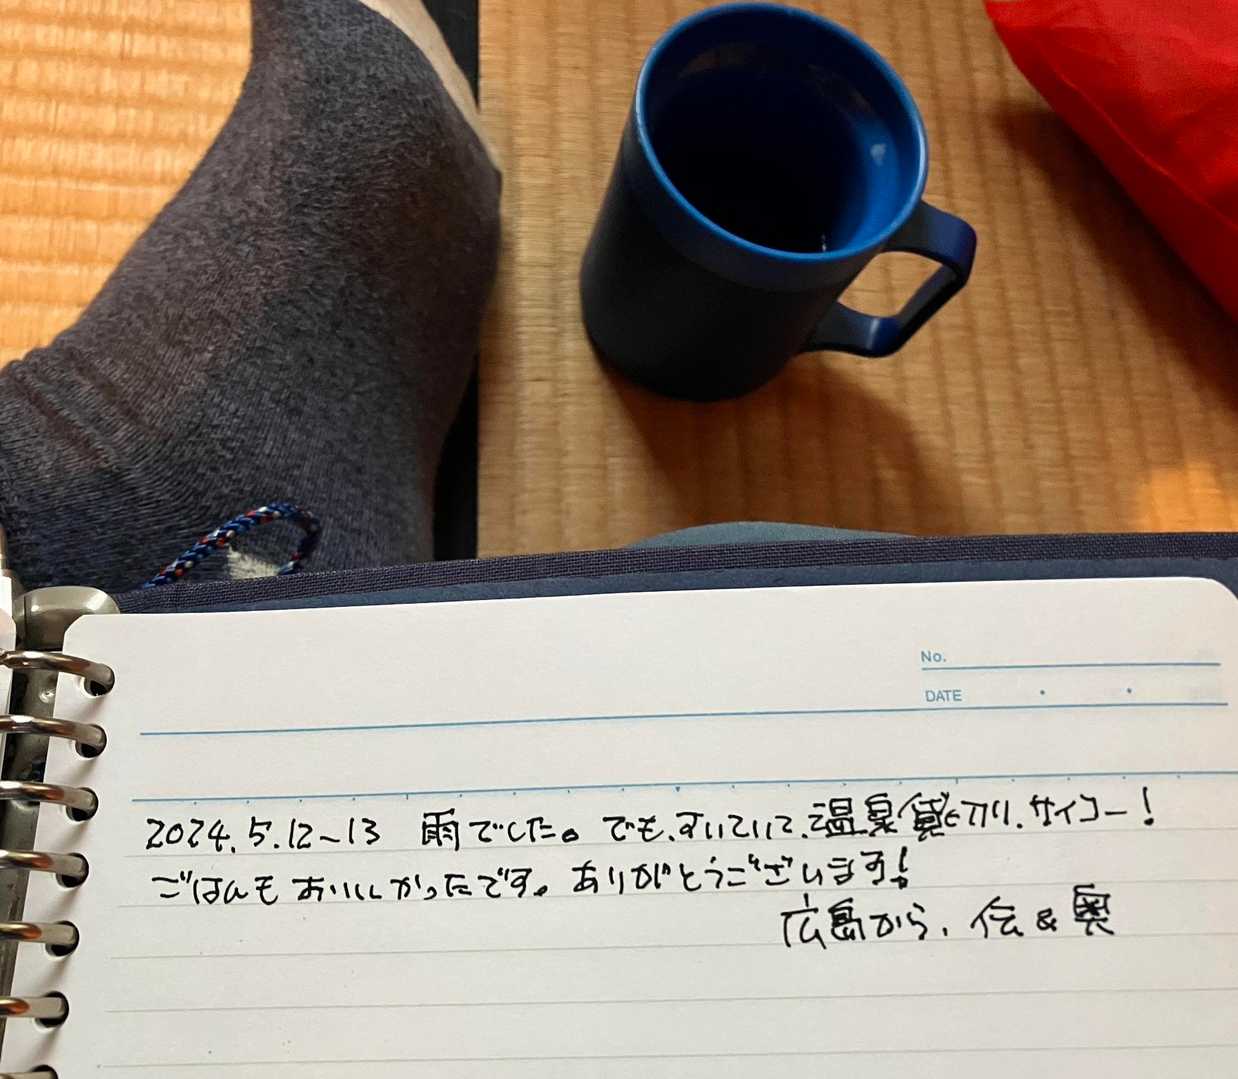 No.
DATE
2024.5.12~13 雨でした。でも、すいていて、温泉貸切り、サイコー!
ごはんもおいしかったです。ありがとうございます!
広島から、伝&奥